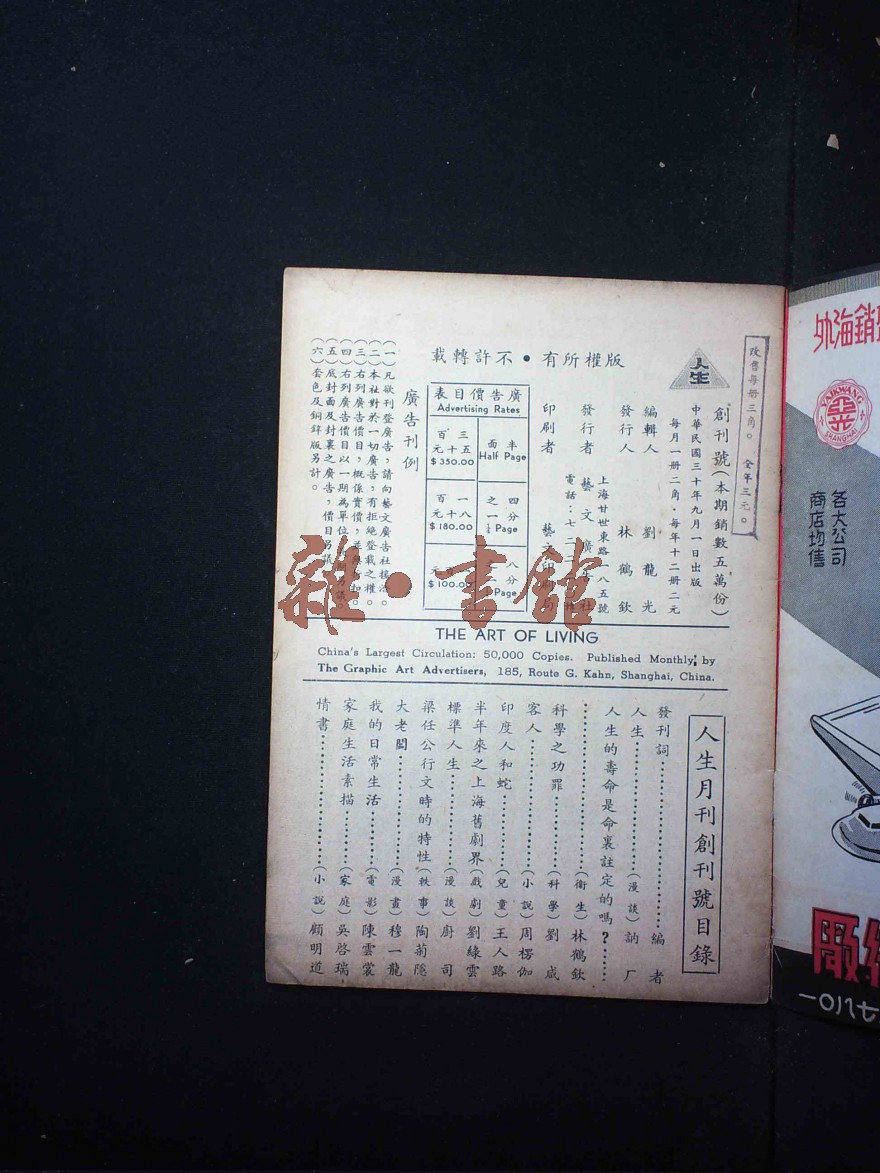 改售每册三角。 全年三元。
人生
創刊號(本期銷數五萬份)
中華民國三十年九月一日出版
每月一册二角·每年十二册二元
編輯人 劉龍光
發行人 林鶴欽
上海甘世東路一八五號
發行者 藝文廣告社
電話:七二
印刷者 藝文印刷局
版權所有·不許轉載
廣告價目表
Advertising Rates
半面
Half Page
三百五十元
$350.00
四分之一
¼ Page
一百八十元
$180.00
八分
Page
$100.00
廣告刊例
(一)凡欲刊登廣告,請向藝文廣告社接洽。
(二)本社對於一切廣告,有拒絕登載之權。
(三)右列廣告價目,概係實價,並無折扣。
(四)右列廣告價目以一期為單位,長期另議。
(五)底封面及封裏之廣告,價目另議。
(六)套色及銅鋅版另計。
雜·書館
THE ART OF LIVING
China's Largest Circulation: 50,000 Copies. Published Monthly, by
The Graphic Art Advertisers, 185, Route G. Kahn, Shanghai, China.
人生月刊創刊號目錄
發刊詞……編者
人生……(漫談)訥厂
人生的壽命是命裏註定的嗎?……
……(衛生)林鶴欽
科學之功罪……(科學)劉咸
客人……(小說)周楞伽
印度人和蛇……(兒童)王人路
半年來之上海舊劇界(戲劇)劉綠雲
標準人生……(漫談)廚司
梁任公行文時的特性(軼事)陶菊隱
大老闆……(漫畫)穆一龍
我的日常生活……(電影)陳雲裳
家庭生活素描……(家庭)吳啓瑞
情書……(小說)顧明道
銷海外
TAIKWANG
SHANGHAI
各大公司
商店均售
廠
一〇八七